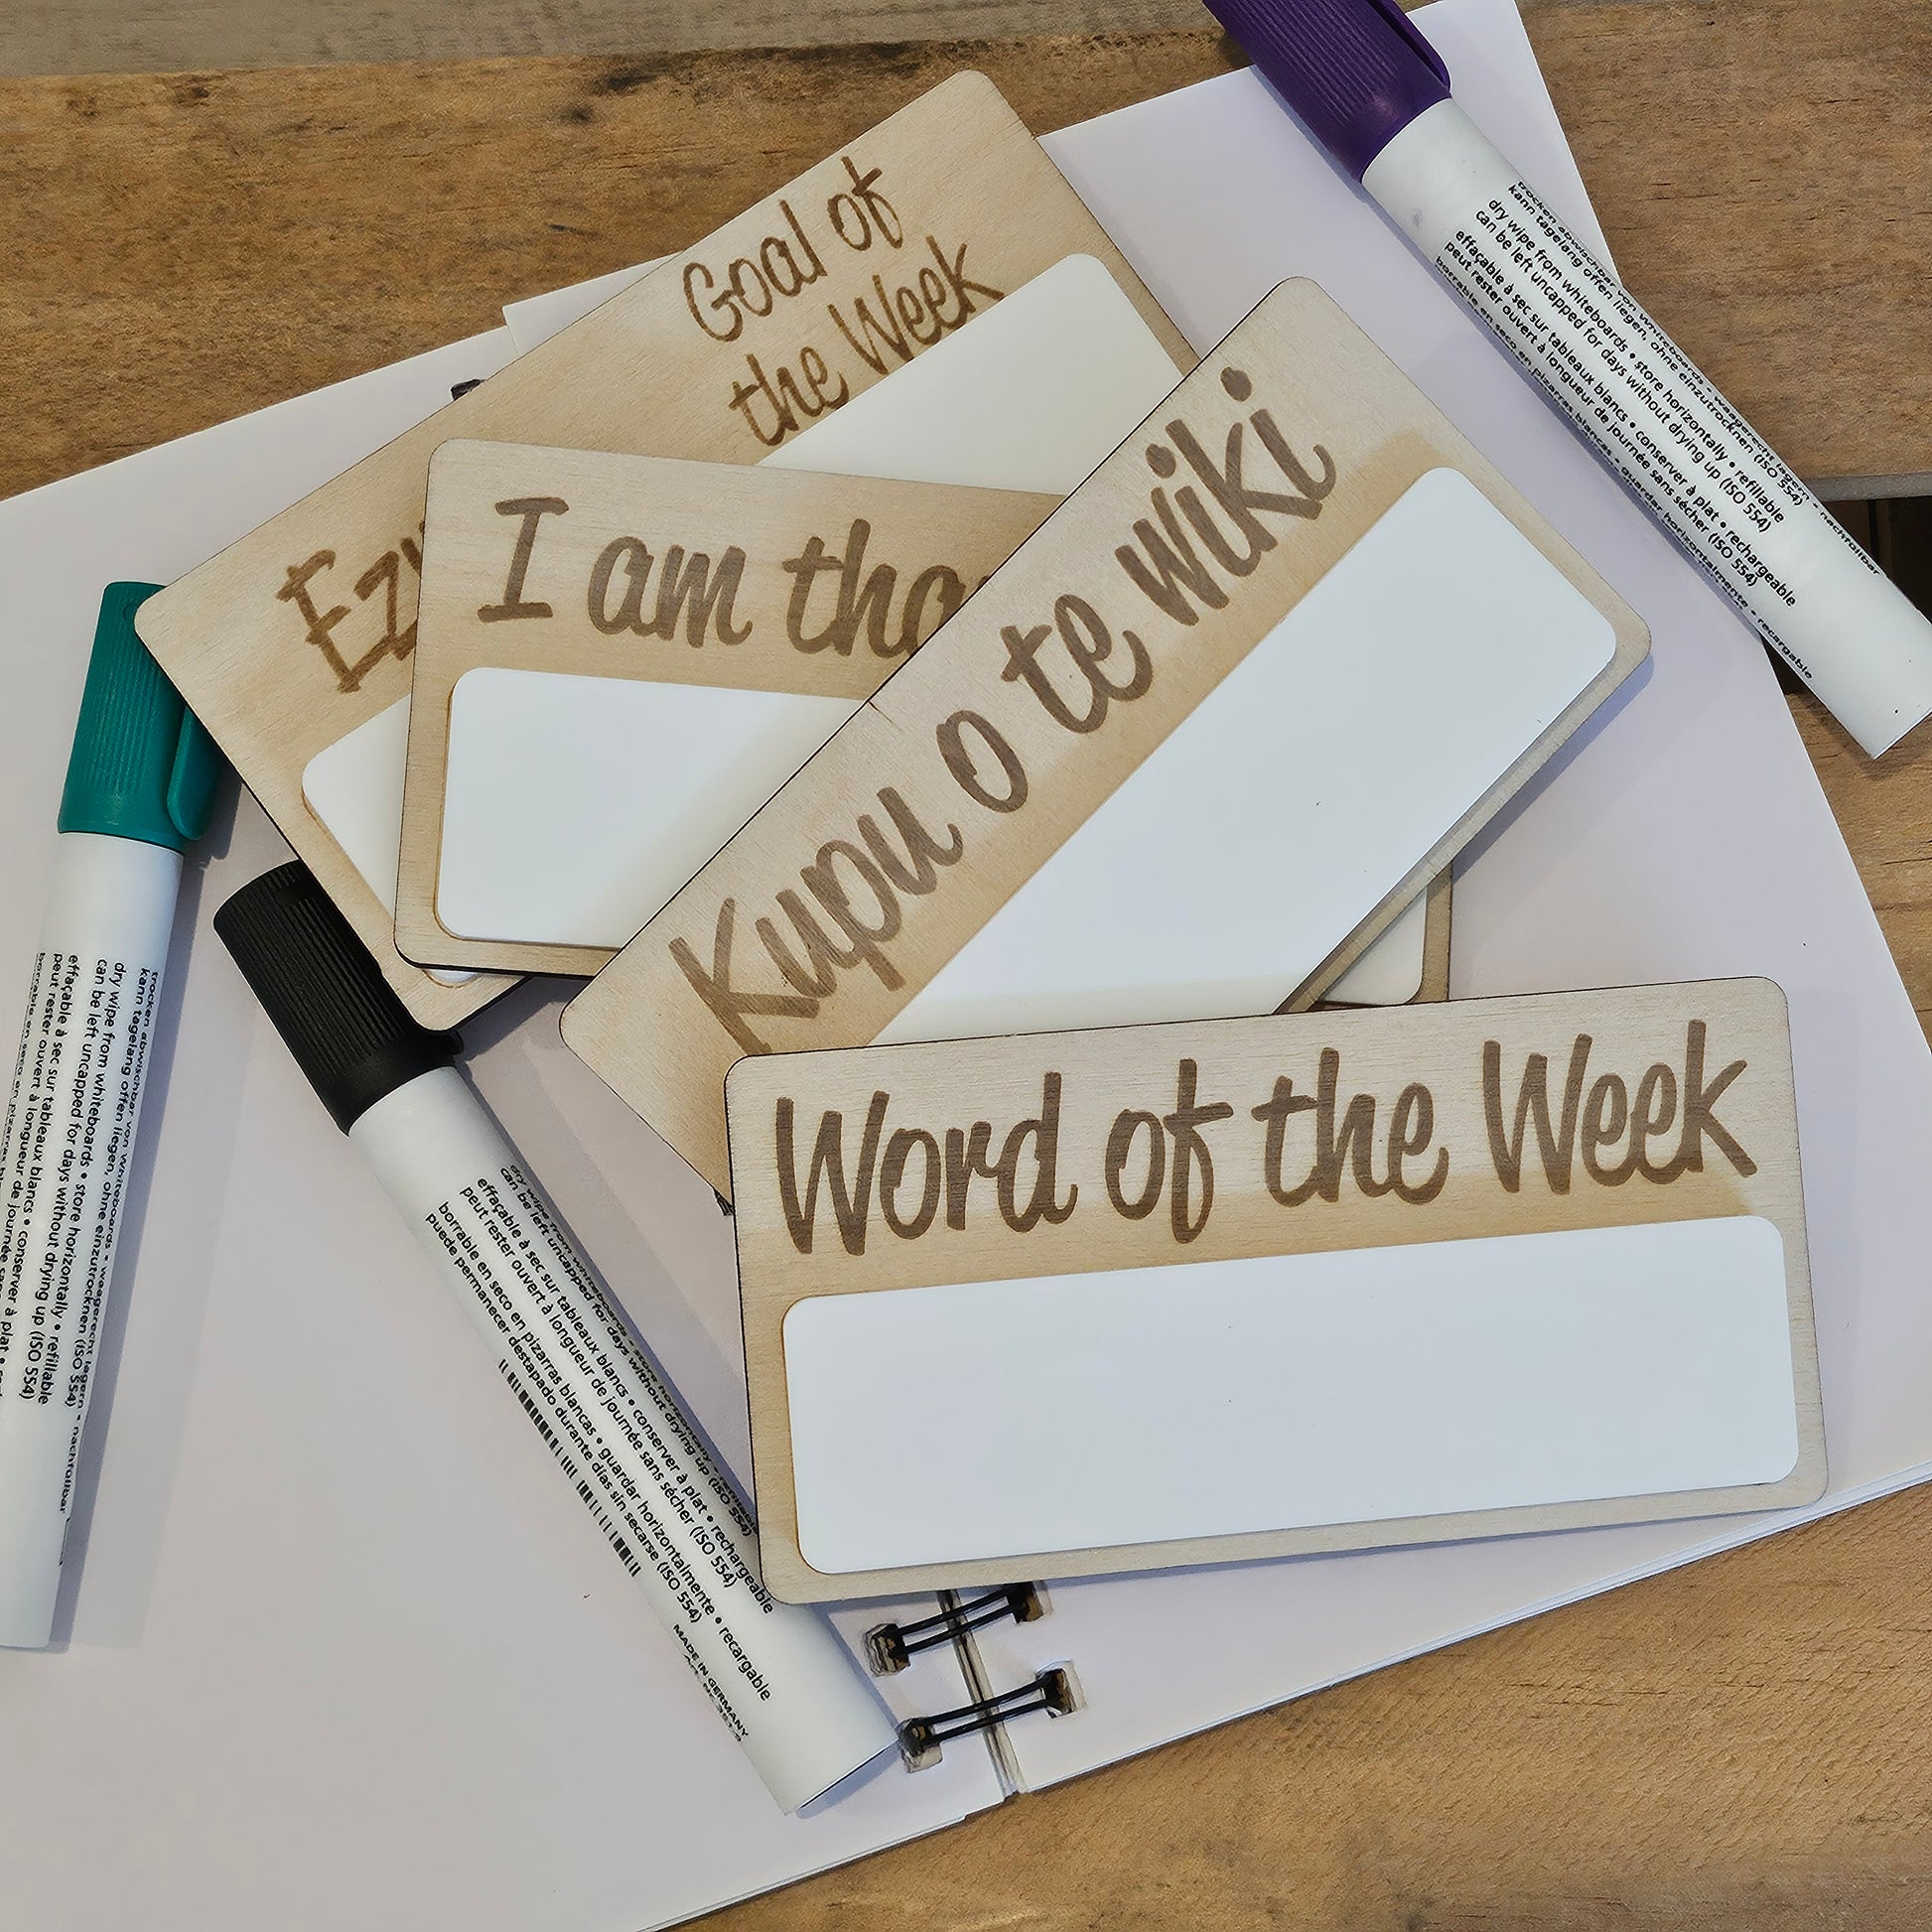 Goal of
the Week
I am
Kupu o te wiki
Word of the Week
trocken abwischbar von whiteboards • waagerecht lagern • nachfüllbar
kann tagelang offen liegen, ohne einzutrocknen (ISO 554)
dry wipe from whiteboards • store horizontally • refillable
can be left uncapped for days without drying up (ISO 554)
effaçable à sec sur tableaux blancs • conserver à plat • rechargeable
peut rester ouvert à longueur de journée sans sécher (ISO 554)
borrable en seco en pizarras blancas • guardar horizontalmente • recargable
trocken abwischbar von whiteboards • waagerecht lagern • nachfüllbar
kann tagelang offen liegen, ohne einzutrocknen (ISO 554)
dry wipe from whiteboards • store horizontally • refillable
can be left uncapped for days without drying up (ISO 554)
effaçable à sec sur tableaux blancs • conserver à plat •
peut rester ouvert à longueur de journée sans sécher
dry wipe from whiteboards • store horizontally • refillable
can be left uncapped for days without drying up (ISO 554)
effaçable à sec sur tableaux blancs • conserver à plat • rechargeable
peut rester ouvert à longueur de journée sans sécher (ISO 554)
borrable en seco en pizarras blancas • guardar horizontalmente • recargable
puede permanecer destapado durante días sin secarse (ISO 554)
MADE IN GERMANY